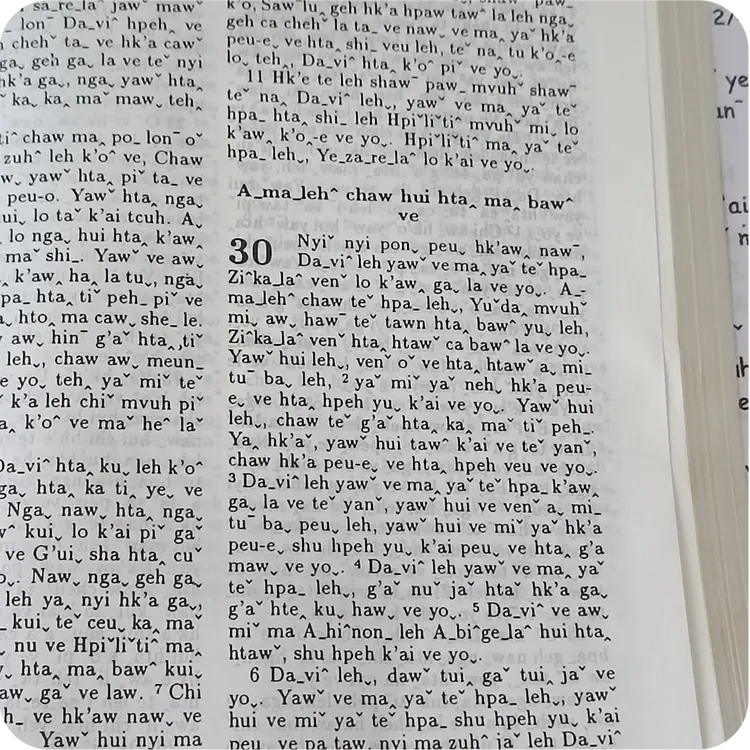 sa_re_laˆ jawˇ mawˇ
lonˉ Da_viˆ hpeh˰ ve
chehˇ ta_ ve hk'a cawˇ
ga˯ geh ga˯ la ve teˇ nyi
hk'a ga˯, nga˯ yawˇ hta˰
ka˯ ka˰ maˇ maw˯ teh˰
tiˆ chaw ma˰ po_ lonˉ oˇ
zuhˆ leh k'oˆ ve, Chaw
yawˇ hta˰ piˇ ta_ ve
peu-o. Yawˇ hta˰ nga˯
ui˯ lo taˇ k'ai tcuh. A˯
lo nga˯ hui hta˰ k'aw˰
maˇ shi_. Yawˇ ve aw˯
k'aw˰ ha˰ la tu˯, nga˯
pa_ hta˰ tiˇ peh_ piˇ ve
hto˰ ma caw˯ she_ le.
aw˯ hinˉ g'aˇ hta˰,tiˇ
leh˯, chaw aw˯ meun_
e yo˯ teh˰ yaˇ miˇ teˇ
k'a leh chiˇ mvuh piˇ
a˰ k'oˆ ve maˇ heˆ laˇ
Da_viˆ hta˰ ku˯ leh k'oˆ
ga˯ hta˰ ka ti˰ ye˯ ve
Nga˯ naw˯ hta˰ nga˯
kui˯ lo k'ai piˇ gaˇ
ve G'ui˯ sha hta˰ cuˇ
o˯. Naw˯ nga˯ geh ga˯
leh ya˰ nyi hk'a ga˯,
kui˯ teˇ ceu˯ ka˰ maˇ
nu ve Hpiˇliˇtiˆ ma˰
hta˰ ma˰ bawˆ kui˯
aw˯ gaˇ ve law. ⁷ Chi
h_ ve hk'aw naw˯ ve
Yawˇ hui nyi ma
k'o˯, Saw˘lu˰ geh hk'a hpaw tawˆ la leh nga˯
geh ca chehˇ la ta_ ve naw˯ ve ma˰ yaˇ hk'a
peu-e˯ ve hta˰ shi_ veu leh, teˇ na˰ tu k'o˰-e
lo˯ teh˰, Da_viˆ hta˰ k'oˆ piˇ ve yo˯.
11 Hk'e te leh shawˇ paw_ mvuhˇ shawˇ
teˇ na˰ Da_viˆ leh˯, yawˇ ve ma˰ yaˇ teˇ
hpa_ hta˰ shi_ leh Hpiˇliˇtiˆ mvuhˇ mi˯ lo
k'aw˰ k'o˰-e ve yo˯. Hpiˇliˇtiˆ ma˰ yaˇ teˇ
hpa_ leh˯, Ye_za_re_laˆ lo k'ai ve yo˯.
A_ma_lehˆ chaw hui hta˰ ma˰ bawˆ
ve
30 Nyiˇ nyi pon˯ peu˯ hk'aw˰ nawˉ,
Da_viˆ leh yawˇ ve ma˰ yaˇ teˇ hpa_
Ziˆka_laˆ venˇ lo k'aw˰ ga˰ la ve yo˯. A_-
ma_lehˆ chaw teˇ hpa_ leh˯, Yuˇda˰ mvuhˇ
mi˯ aw˰ hawˉ teˇ tawn hta˰ bawˆ yu˯ leh,
Ziˆka_laˆ venˇ hta˰ htawˇ ca bawˆ la ve yo˯.
Yawˇ hui leh˯, venˇ oˇ ve hta˰ htawˇ a˰ mi_
tuˉ ba˯ leh, ² yaˇ miˇ yaˇ neh˰ hk'a peu-
e˯ ve hta˰ hpeh yu˯ k'ai ve yo˯. Yawˇ hui
leh˯, chaw teˇ g'aˇ hta˰ ka˰ maˇ tiˇ peh_
Ya˰ hk'aˇ, yawˇ hui tawˆ k'ai ve teˇ yanˇ,
chaw hk'a peu-e˯ ve hta˰ hpeh veu ve yo˯.
³ Da_viˆ leh yawˇ ve ma˰ yaˇ teˇ hpa_ k'aw˰
ga˰ la ve teˇ yanˇ, yawˇ hui ve venˇ a˰ mi_
tuˉ ba˯ peu˯ leh, yawˇ hui ve miˇ yaˇ hk'a
peu-e˯ shu hpeh yu˯ k'ai peu˯ ve hta˰ g'a
maw˯ ve yo˯. ⁴ Da_viˆ leh yawˇ ve ma˰ yaˇ
teˇ hpa_ leh˯, g'aˇ nuˇ jaˇ htaˇ hk'a ga˯
g'aˇ hte˰ ku˯ haw˯ ve yo˯. ⁵ Da_viˆ ve aw˯
miˇ ma A_hiˆnon_ leh A_biˆge_laˆ hui hta˰
htaw˯ shu hpeh k'ai ve yo˯.
6 Da_viˆ leh˯, dawˇ tui˰ gaˇ tui˰ jaˇ ve
yo˯. Yawˇ ve ma˰ yaˇ teˇ hpa_ leh˯, yawˇ
hui ve miˇ yaˇ teˇ hpa_ shu hpeh yu˯ k'ai
peu˯ ve pa taw˯ nyi ma zuhˆ jaˇ leh Da_viˆ